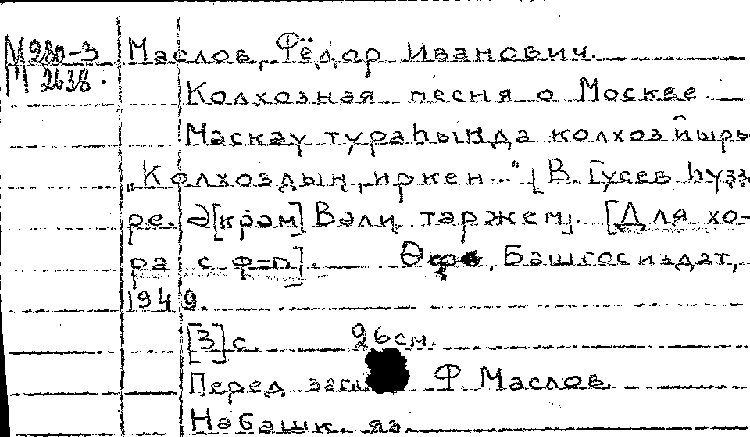 М 280-3 Маслов, Фёдор Иванович.
М 2638.
Колхозная песня о Москве.
Маскау тураһында колхоз йыры
„Колхоздың иркен..." [В. Гусев һүзз-
ре. Ә[крәм] Вәли тәржем]. [Для хо-
ра с ф=п]. Өфө, Башгосиздат,
1949.
[3] с. 26 см.
Перед загл. Ф. Маслов
На башк. яз.